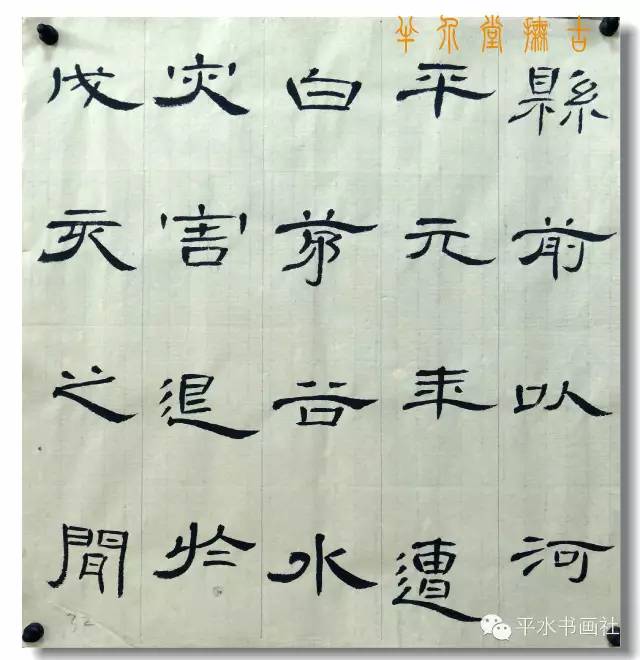 縣前以河
平元年遭
白茅谷水
灾害退於
戌亥之間
32
平水书画社